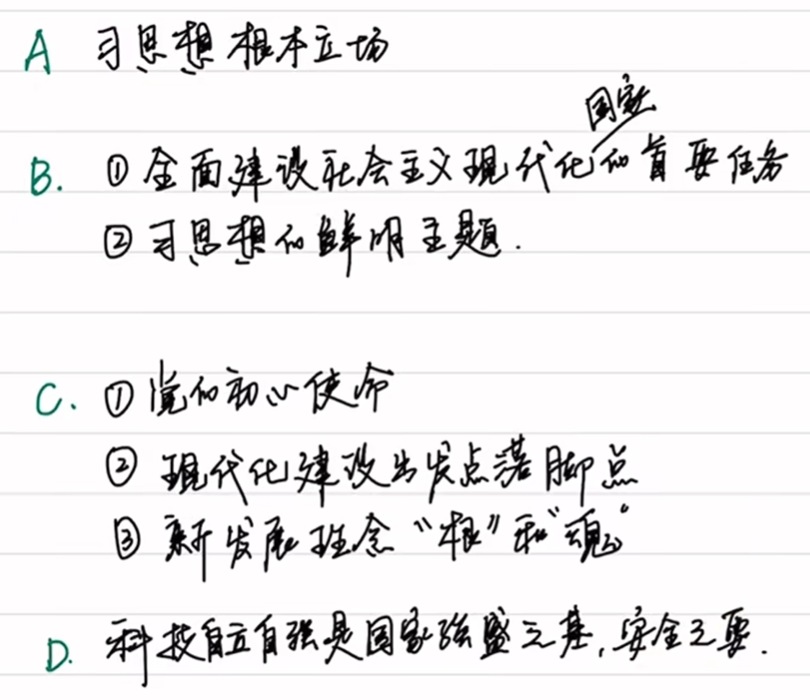 A 习思想根本立场
国家
B. ①全面建设社会主义现代化的首要任务
②习思想的鲜明主题.
C. ①党的初心使命
②现代化建设出发点落脚点
③新发展理念“根”和“魂”
D. 科技自立自强是国家强盛之基,安全之要.